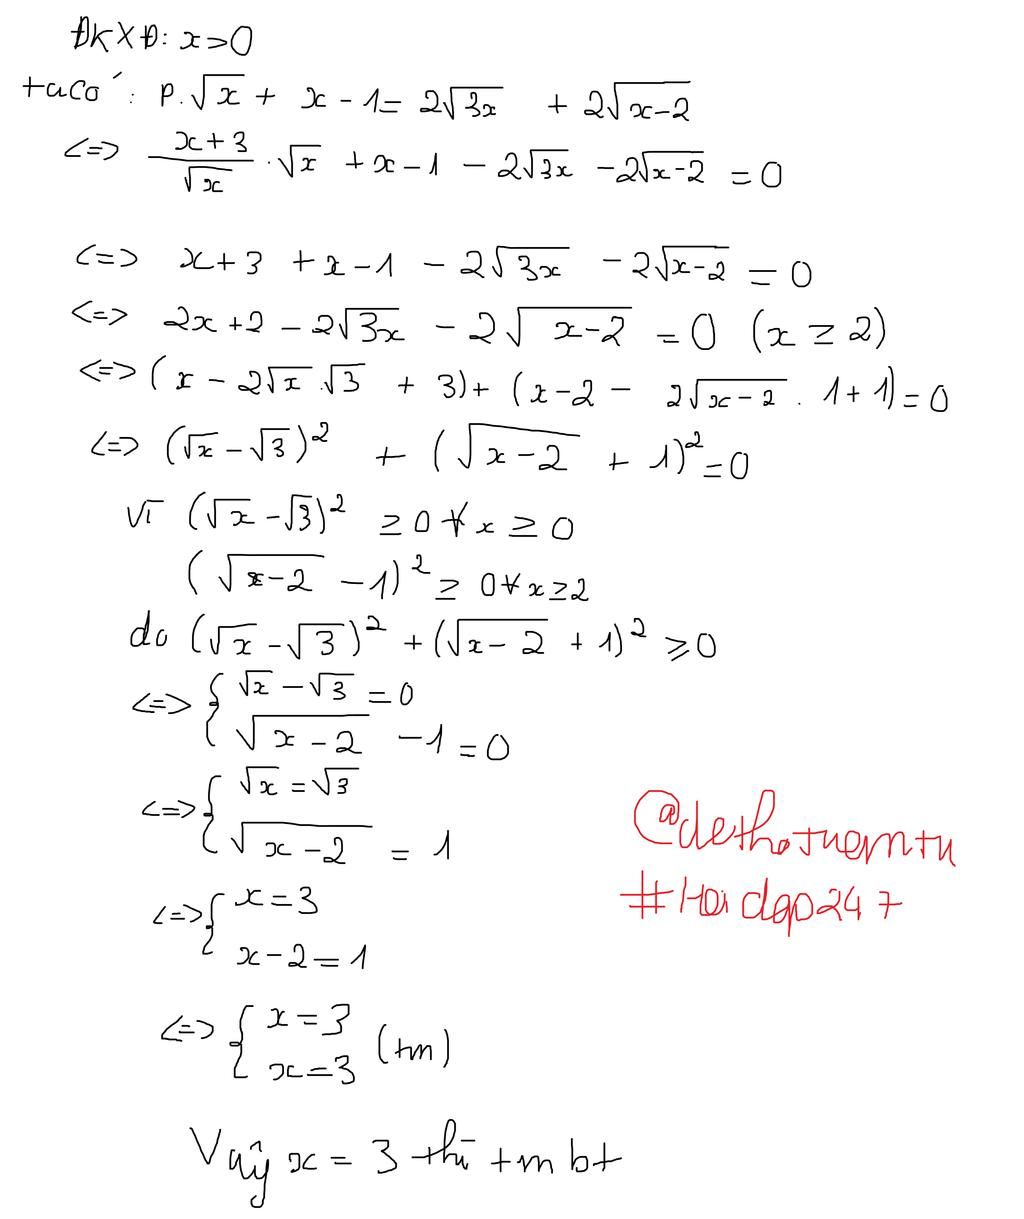 ĐKXĐ: x>0
ta có: P.√x + x - 1 = 2√3x + 2√x-2
<=> x+3/√x .√x + x - 1 - 2√3x - 2√x-2 = 0
<=> x+3 + x-1 - 2√3x - 2√x-2 = 0
<=> 2x+2 - 2√3x - 2√x-2 = 0 (x ≥ 2)
<=> (x - 2√x.√3 + 3) + (x-2 - 2√x-2 . 1+1) = 0
<=> (√x - √3)² + (√x-2 + 1)² = 0
Vì (√x - √3)² ≥ 0 ∀ x ≥ 0
(√x-2 - 1)² ≥ 0 ∀ x ≥ 2
do (√x - √3)² + (√x-2 + 1)² ≥ 0
<=> { √x - √3 = 0
√x-2 - 1 = 0
<=> { √x = √3
√x-2 = 1
<=> { x = 3
x-2 = 1
<=> { x = 3
x = 3 (tm)
Vậy x = 3 thì tm bt
@dethotuemtu
#Hoidap247